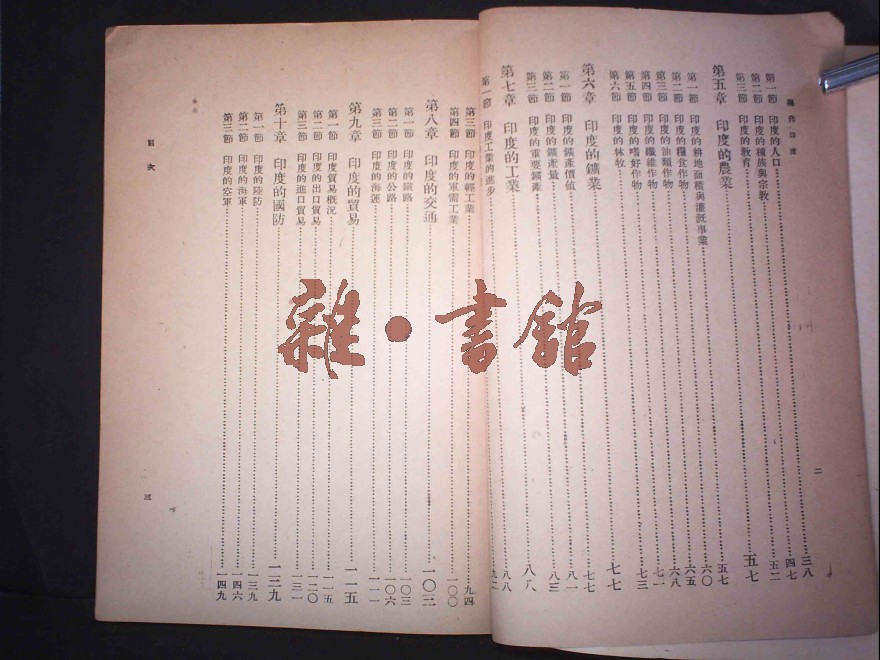 現代印度
二
第一節 印度的人口……三八
第二節 印度的種族與宗教……四七
第三節 印度的教育……五二
第五章 印度的農業……五七
第一節 印度的耕地面積與灌溉事業……五七
第二節 印度的糧食作物……六〇
第三節 印度的油類作物……六五
第四節 印度的纖維作物……六八
第五節 印度的嗜好作物……七一
第六節 印度的林牧……七三
第六章 印度的鑛業……七七
第一節 印度的鑛產價值……七七
第二節 印度的鑛產量……八一
第三節 印度的重要鑛產……八三
第七章 印度的工業……八八
第一節 印度工業的進步……八八
九二
第三節 印度的輕工業……九四
第四節 印度的軍需工業……一〇〇
第八章 印度的交通……一〇三
第一節 印度的鐵路……一〇三
第二節 印度的公路……一〇六
第三節 印度的海運……一一一
第九章 印度的貿易……一一五
第一節 印度貿易概況……一一五
第二節 印度的出口貿易……一二〇
第三節 印度的進口貿易……一三一
第十章 印度的國防……一三九
第一節 印度的陸防……一三九
第二節 印度的海軍……一四六
第三節 印度的空軍……一四九
目次
三
雜·書館